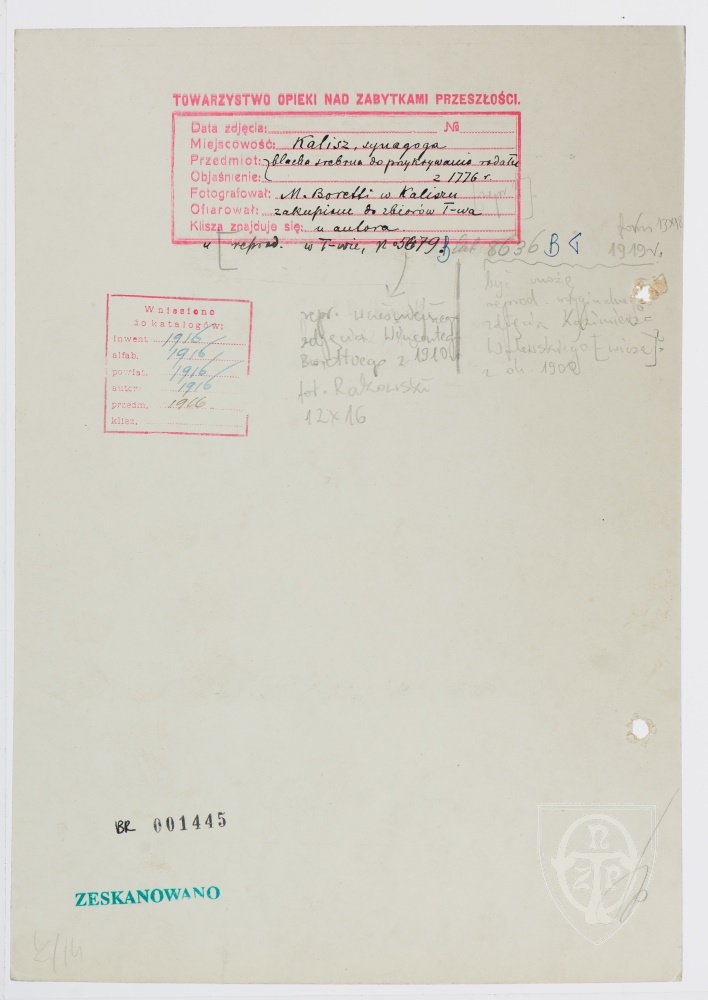 TOWARZYSTWO OPIEKI NAD ZABYTKAMI PRZESZŁOŚCI.
Data zdjęcia: №
Miejscowość: Kalisz, synagoga
Przedmiot: blacha srebrna do przykrywania rodału
Objaśnienie: z 1776 r.
Fotografował: M. Boretti w Kaliszu
Ofiarował: zakupione do zbiorów T-wa
Klisza znajduje się: u autora.
[reprod. w T-wie, 8636 B
1919 r.
Wniesiono
do katalogów:
inwent. 1916
alfab. 1916
powiat. 1916
autor. 1916
przedm. 1916
klisz.
repr. wcześniejszego
zdjęcia Wincentego
Borettiego z 1910
fot. Rakowski
12x16
być może
reprod. oryginalnego
zdjęcia Kazimierza
z ok. 1908
BR 001445
ZESKANOWANO